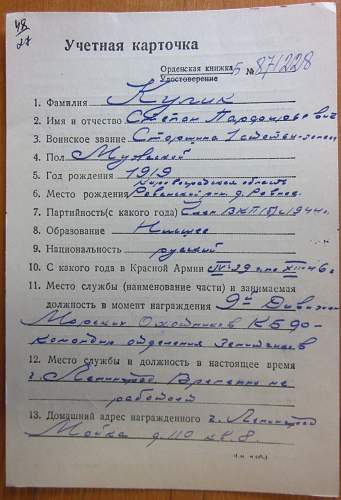 48
27
Учетная карточка
Орденская книжка
Удостоверение Б № 871228
1. Фамилия Кулик
2. Имя и отчество Степан
3. Воинское звание Старшина 1 статьи-запаса
4. Пол Мужской
5. Год рождения 1919
Кировоградская область
6. Место рождения д. Ровное
7. Партийность (с какого года) Член ВКП(б) с 1944 г.
8. Образование Низшее
9. Национальность русский
10. С какого года в Красной Армии IV-39 г. по XII-46 г.
11. Место службы (наименование части) и занимаемая
должность в момент награждения 9й Дивизион
Морских Охотников КБФ-
командир отделения
12. Место службы и должность в настоящее время
г. Ленинград Временно не
работает
13. Домашний адрес награжденного г. Ленинград
Мойка д. 110 кв 8.